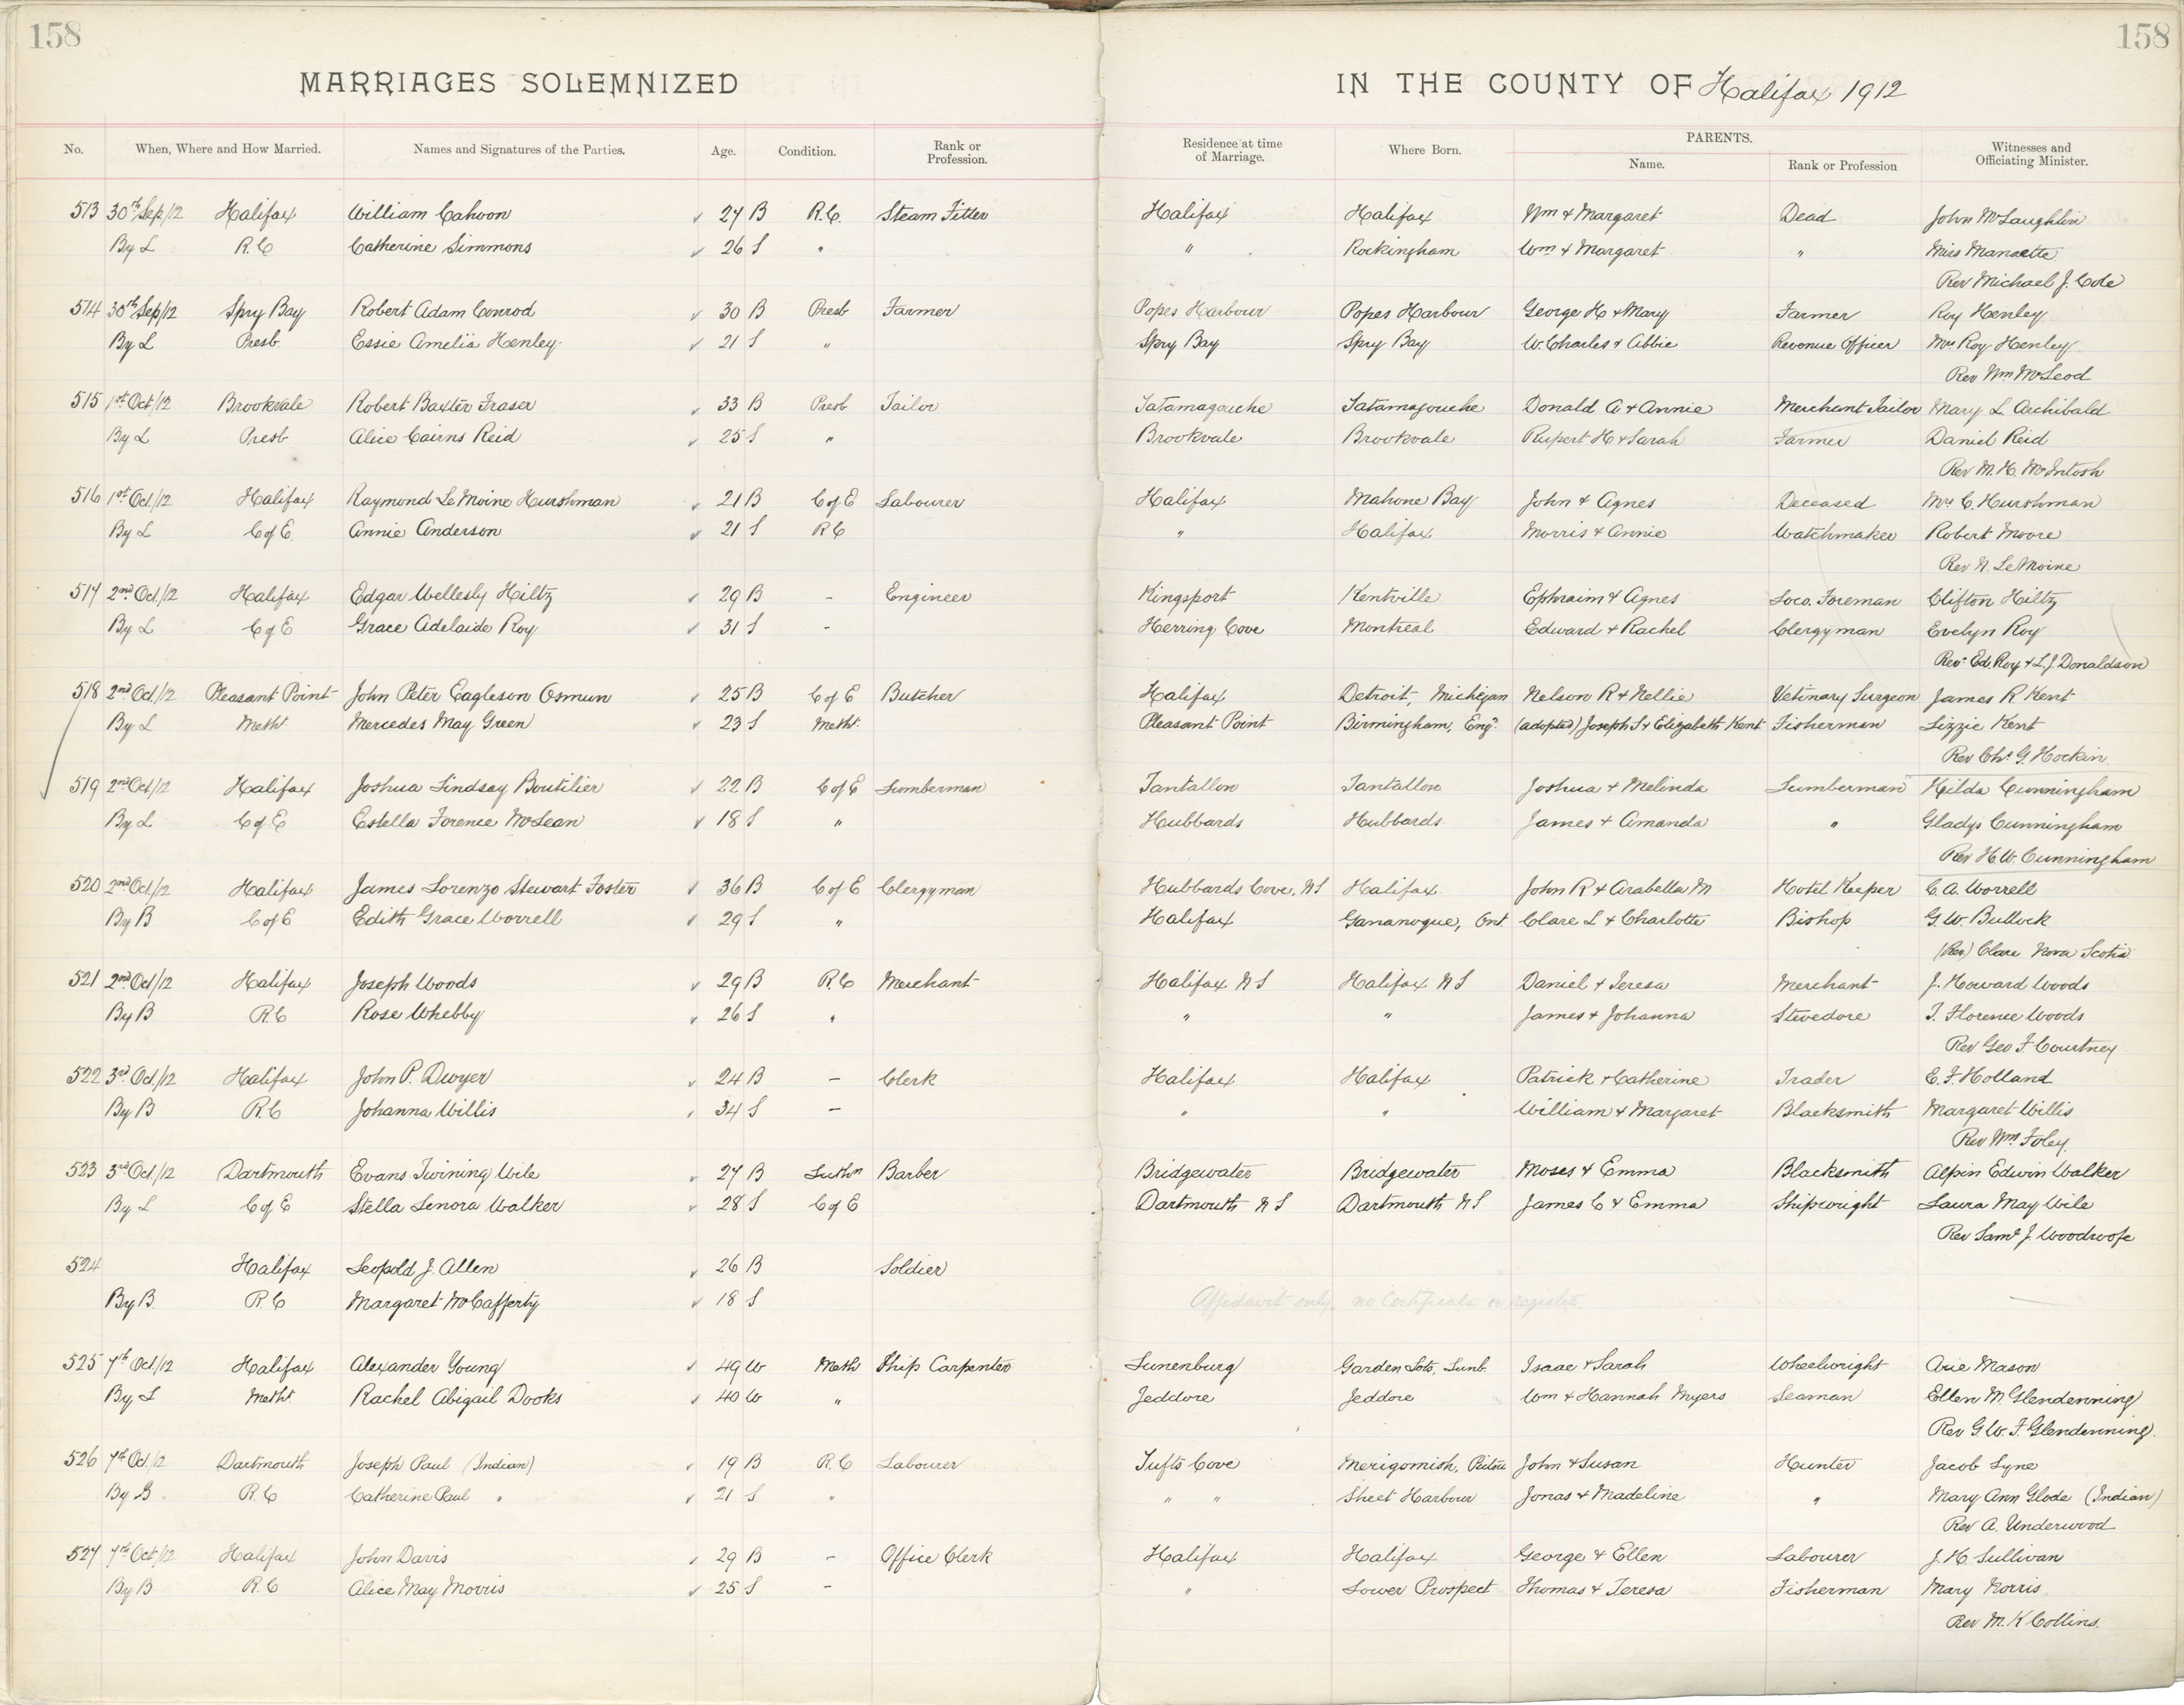 158
158
MARRIAGES SOLEMNIZED IN THE COUNTY OF Halifax 1912
No. When, Where and How Married. Names and Signatures of the Parties. Age. Condition. Rank or Profession. Residence at time of Marriage. Where Born. PARENTS. Name. Rank or Profession Witnesses and Officiating Minister.
513 30th Sep/12 Halifax William Cahoon 27 B R.C. Steam Fitter Halifax Halifax Wm & Margaret Dead John McLaughlin
By L R.C Catherine Simmons 26 S " " Rockingham Wm & Margaret " Miss Mansette
Rev Michael J. Cole
514 30th Sep/12 Spry Bay Robert Adam Conrod 30 B Presb Farmer Popes Harbour Popes Harbour George H & Mary Farmer Roy Henley
By L Presb Essie Amelia Henley 21 S " Spry Bay Spry Bay W. Charles & Abbie Revenue Officer Mrs Roy Henley
Rev Wm McLeod
515 1st Oct/12 Brookvale Robert Baxter Fraser 33 B Presb Tailor Tatamagouche Tatamagouche Donald A & Annie Merchant Tailor Mary L Archibald
By L Presb Alice Cairns Reid 25 S " Brookvale Brookvale Rupert H & Sarah Farmer Daniel Reid
Rev M. H. McIntosh
516 1st Oct/12 Halifax Raymond LeMoine Hurshman 21 B C of E Labourer Halifax Mahone Bay John & Agnes Deceased Mrs C. Hurshman
By L C of E. Annie Anderson 21 S R C " Halifax Morris & Annie Watchmaker Robert Moore
Rev N. LeMoine
517 2nd Oct/12 Halifax Edgar Wellesly Hiltz 29 B - Engineer Kingsport Kentville Ephraim & Agnes Loco. Foreman Clifton Hiltz
By L C of E Grace Adelaide Roy 31 S - Herring Cove Montreal Edward & Rachel Clergyman Evelyn Roy
Revs Ed. Roy & L. J. Donaldson
518 2nd Oct/12 Pleasant Point John Peter Eagleson Osmun 25 B C of E Butcher Halifax Detroit, Michigan Nelson R & Nellie Vetinary Surgeon James R Kent
By L Metht Mercedes May Green 23 S Metht. Pleasant Point Birmingham, Engd. (adopted) Joseph S & Elizabeth Kent Fisherman Lizzie Kent
Rev Chs G. Hockin
519 2nd Oct/12 Halifax Joshua Lindsay Boutilier 22 B C of E Lumberman Tantallon Tantallon Joshua & Melinda Lumberman Hilda Cunningham
By L C of E Estella Forence McLean 18 S " Hubbards Hubbards James & Amanda " Gladys Cunningham
Rev H. W. Cunningham
520 2nd Oct/12 Halifax James Lorenzo Stewart Foster 36 B C of E Clergyman Hubbards Cove, N S Halifax John R & Arabella M Hotel Keeper C. A. Worrell
By B C of E Edith Grace Worrell 29 S " Halifax Gananoque, Ont. Clare L & Charlotte Bishop G. W. Bullock
(Rev) Clare Nova Scotia
521 2nd Oct/12 Halifax Joseph Woods 29 B R.C Merchant Halifax N S Halifax N S Daniel & Teresa Merchant J. Howard Woods
By B R.C Rose Whebby 26 S " " " James & Johanna Stevedore T. Florence Woods
Rev Geo F. Courtney
522 3rd Oct/12 Halifax John P. Dwyer 24 B - Clerk Halifax Halifax Patrick & Catherine Trader E. F. Holland
By B R.C Johanna Willis 34 S - " " William & Margaret Blacksmith Margaret Willis
Rev Wm Foley
523 3rd Oct/12 Dartmouth Evans Twining Wile 27 B Luthn Barber Bridgewater Bridgewater Moses & Emma Blacksmith Alpin Edwin Walker
By L C of E Stella Lenora Walker 28 S C of E Dartmouth N S Dartmouth N S James C & Emma Shipwright Laura May Wile
Rev Saml J. Woodroofe
524 Halifax Leopold J. Allen 26 B Soldier
By B. R. C Margaret McCafferty 18 S Affidavit only, no Certificate or register.
525 7th Oct/12 Halifax Alexander Young 49 W Meth Ship Carpenter Lunenburg Garden Lots, Lunb. Isaac & Sarah Wheelwright Arie Mason
By L Metht Rachel Abigail Dooks 40 W " Jeddore Jeddore Wm & Hannah Myers Seaman Ellen M. Glendenning
Rev G. W. F. Glendenning.
526 7th Oct/12 Dartmouth Joseph Paul (Indian) 19 B R.C Labourer Tufts Cove Merigomish, Pictou John & Susan Hunter Jacob Lyne
By B R.C Catherine Paul " 21 S " " " Sheet Harbour Jonas & Madeline " Mary Ann Glode (Indian)
Rev A. Underwood
527 7th Oct/12 Halifax John Davis 29 B - Office Clerk Halifax Halifax George & Ellen Labourer J. H. Sullivan
By B R.C Alice May Morris 25 S - " Lower Prospect Thomas & Teresa Fisherman Mary Norris
Rev M. K Collins.